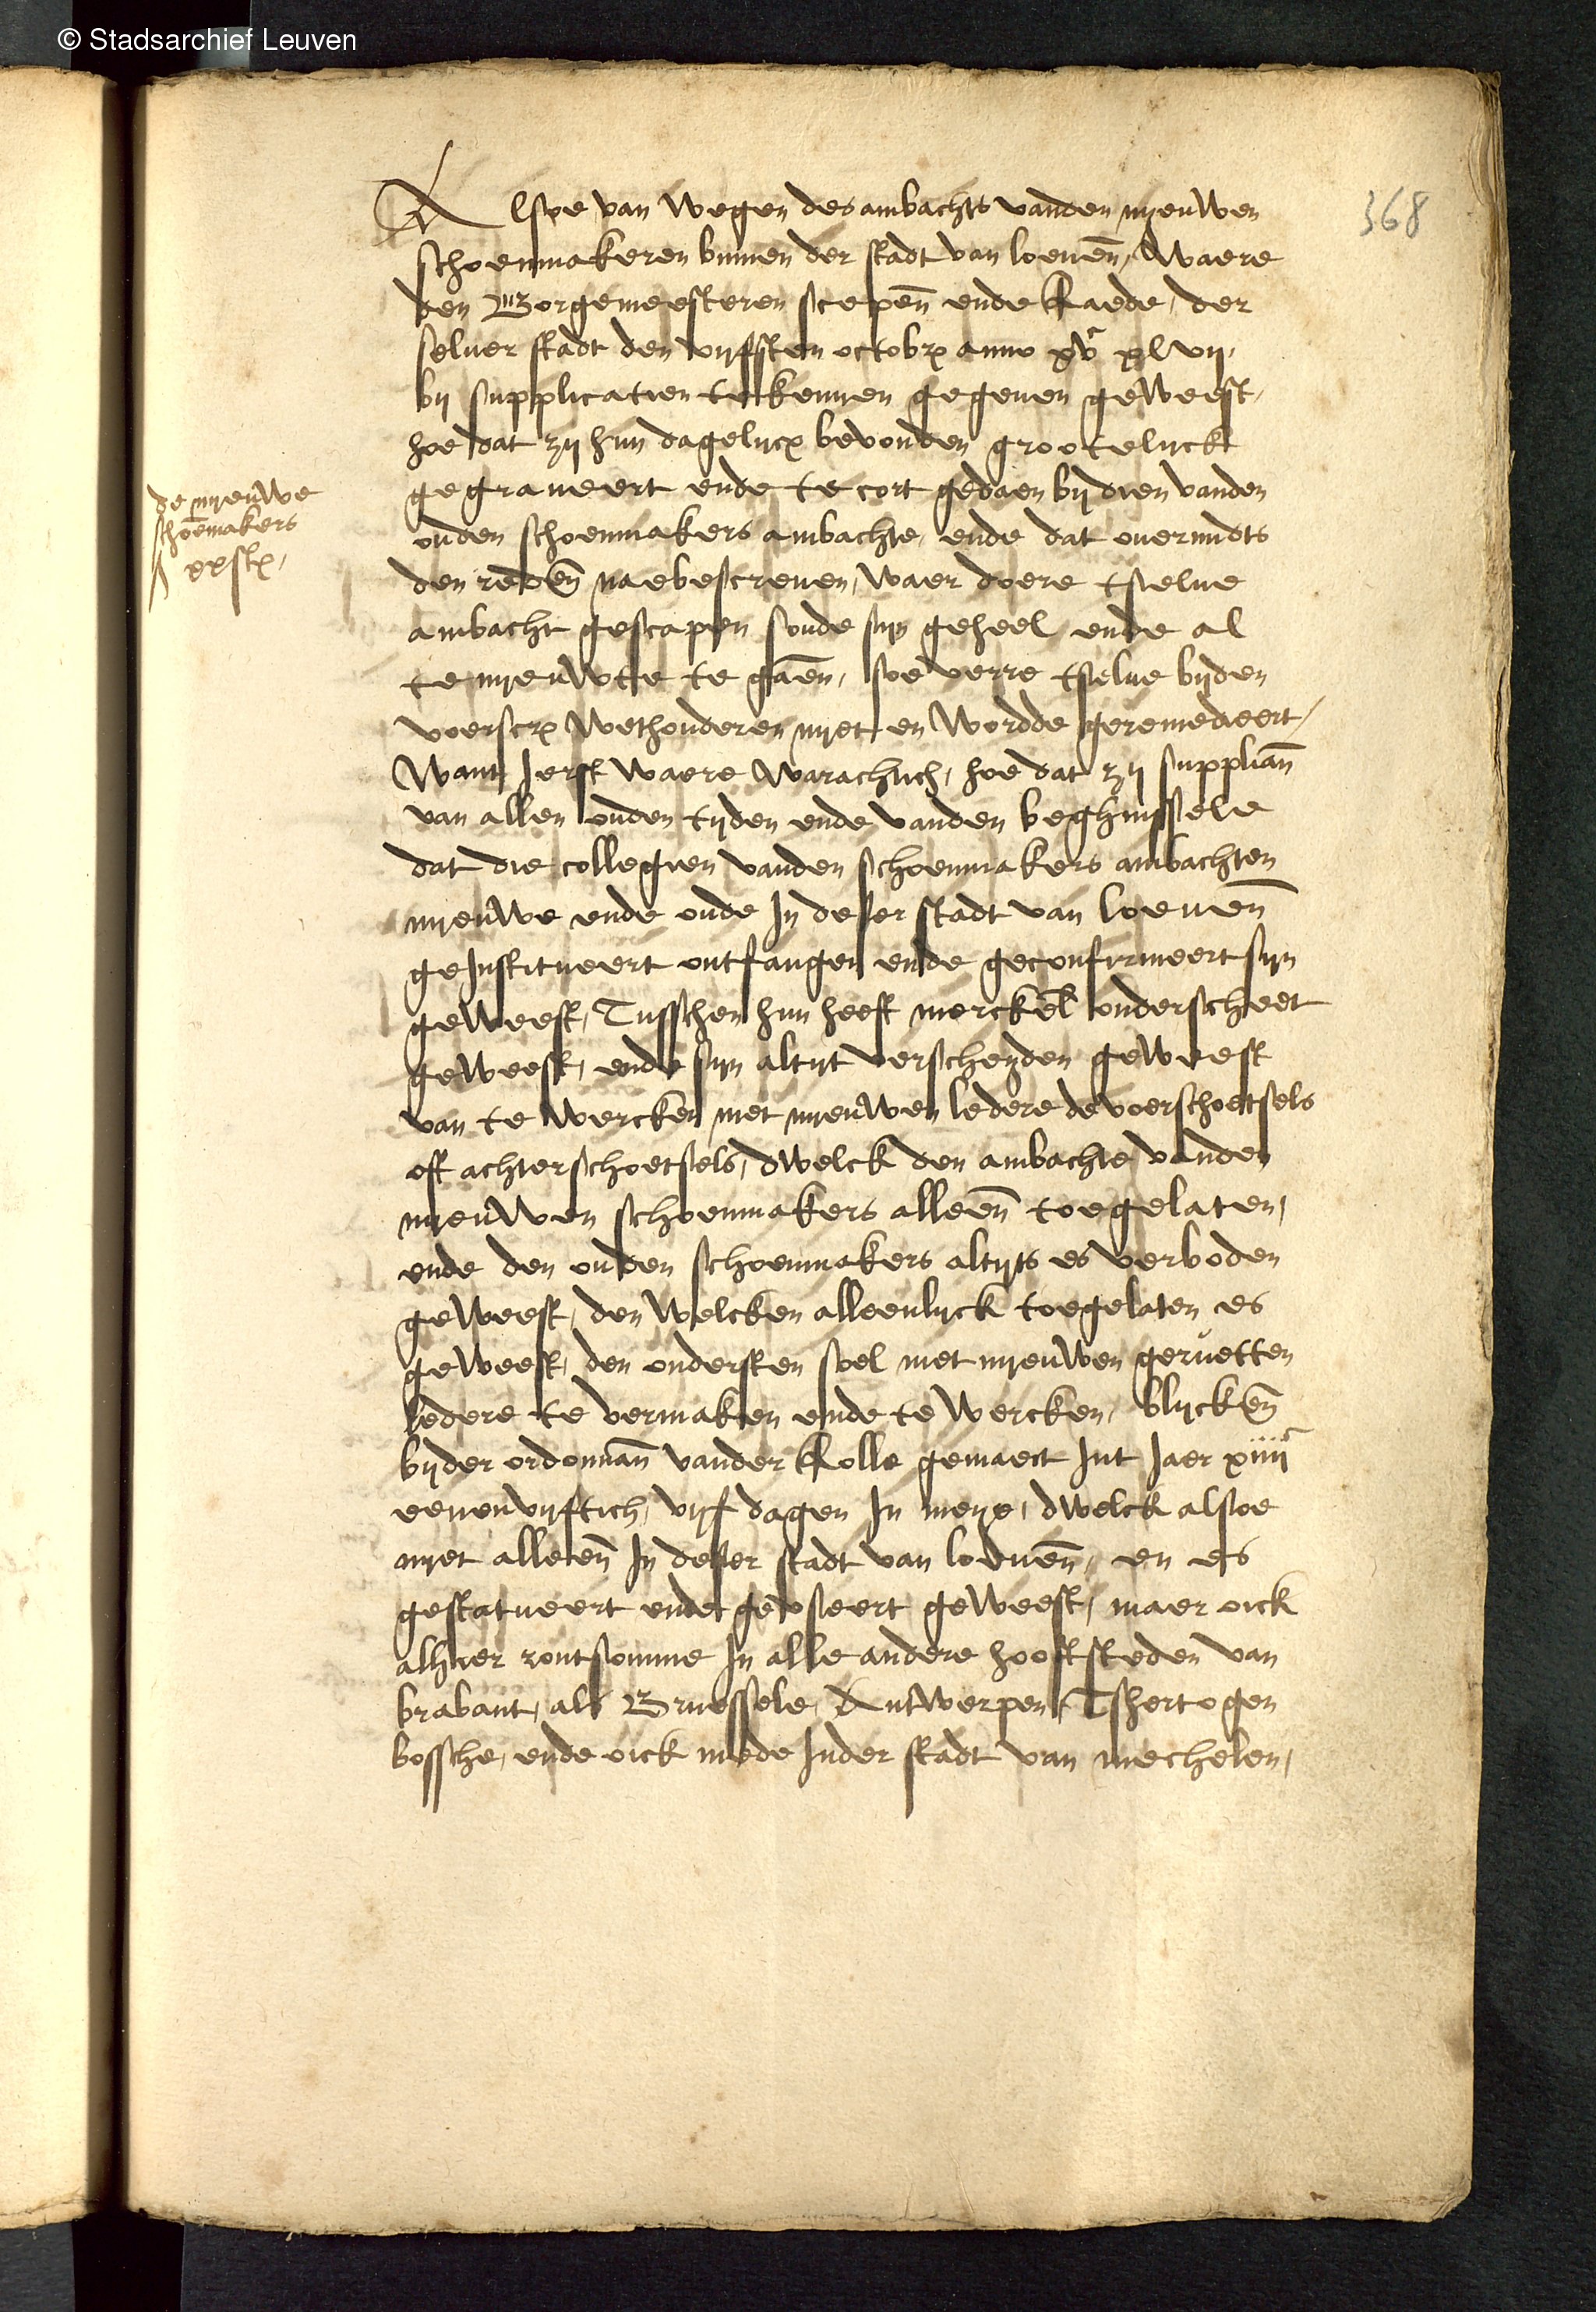 © Stadsarchief Leuven
368
Alsoe van wegen des ambachts vanden nyeuwen
schoenmakeren binnen der stadt van loeuen, waere
den Borgemeesteren scepen ende Raede, der
seluer stadt den vyfsten octobr anno xvc xlvij,
by supplicatien te kennen gegeuen geweest,
hoe dat zy hun dagelycx bevonden grootelyck
gegraueert ende te cort gedaen by dien vanden
ouden schoenmakers ambachte, ende dat ouermidts
den reden naebescreuen, waer doere tselue
ambacht gescapen soude syn geheel ende al
te nyeuwte te gaen, soe verre tselue byden
voerscr wethouderen nyet en wordde geremedieert,
de nyeuwe
schoenmakers
Want Ierst waere warachtich, hoe dat zy supplian
van allen ouden tyden ende vanden beghinssele
dat die collegien vanden schoenmakers ambachten
nyeuwe ende oude In deser stadt van loeuen
geInstitueert ontfangen ende geconfirmeert syn
geweest, Tusschen hun heeft merckel onderscheet
geweest, ende syn altyt verscheyden geweest
van te wercken met nyeuwen ledere de voerschoetsels
oft achterschoetsels, dwelck den ambachte vanden
nyeuwen schoenmakers alleen toegelaten,
ende den ouden schoenmakers altyts es verboden
geweest, den welcken alleenlyck toegelaten es
geweest, den ondersten soel met nyeuwen geruetten
ledere te vermaken ende te wercken, blycken
byder ordonnan vander Rolle gemaect Int Jaer xiiijc
eenenvyftich, vyf dagen In meye, dwelck alsoe
nyet alleen In deser stadt van loeuen, en es
gestatueert ende geuseert geweest, maer oick
alhier rontsomme In alle andere hooftsteden van
brabant, als Bruessele, Antwerpen, Tshertogen
bossche, ende oick mede Inder stadt van mechelen,